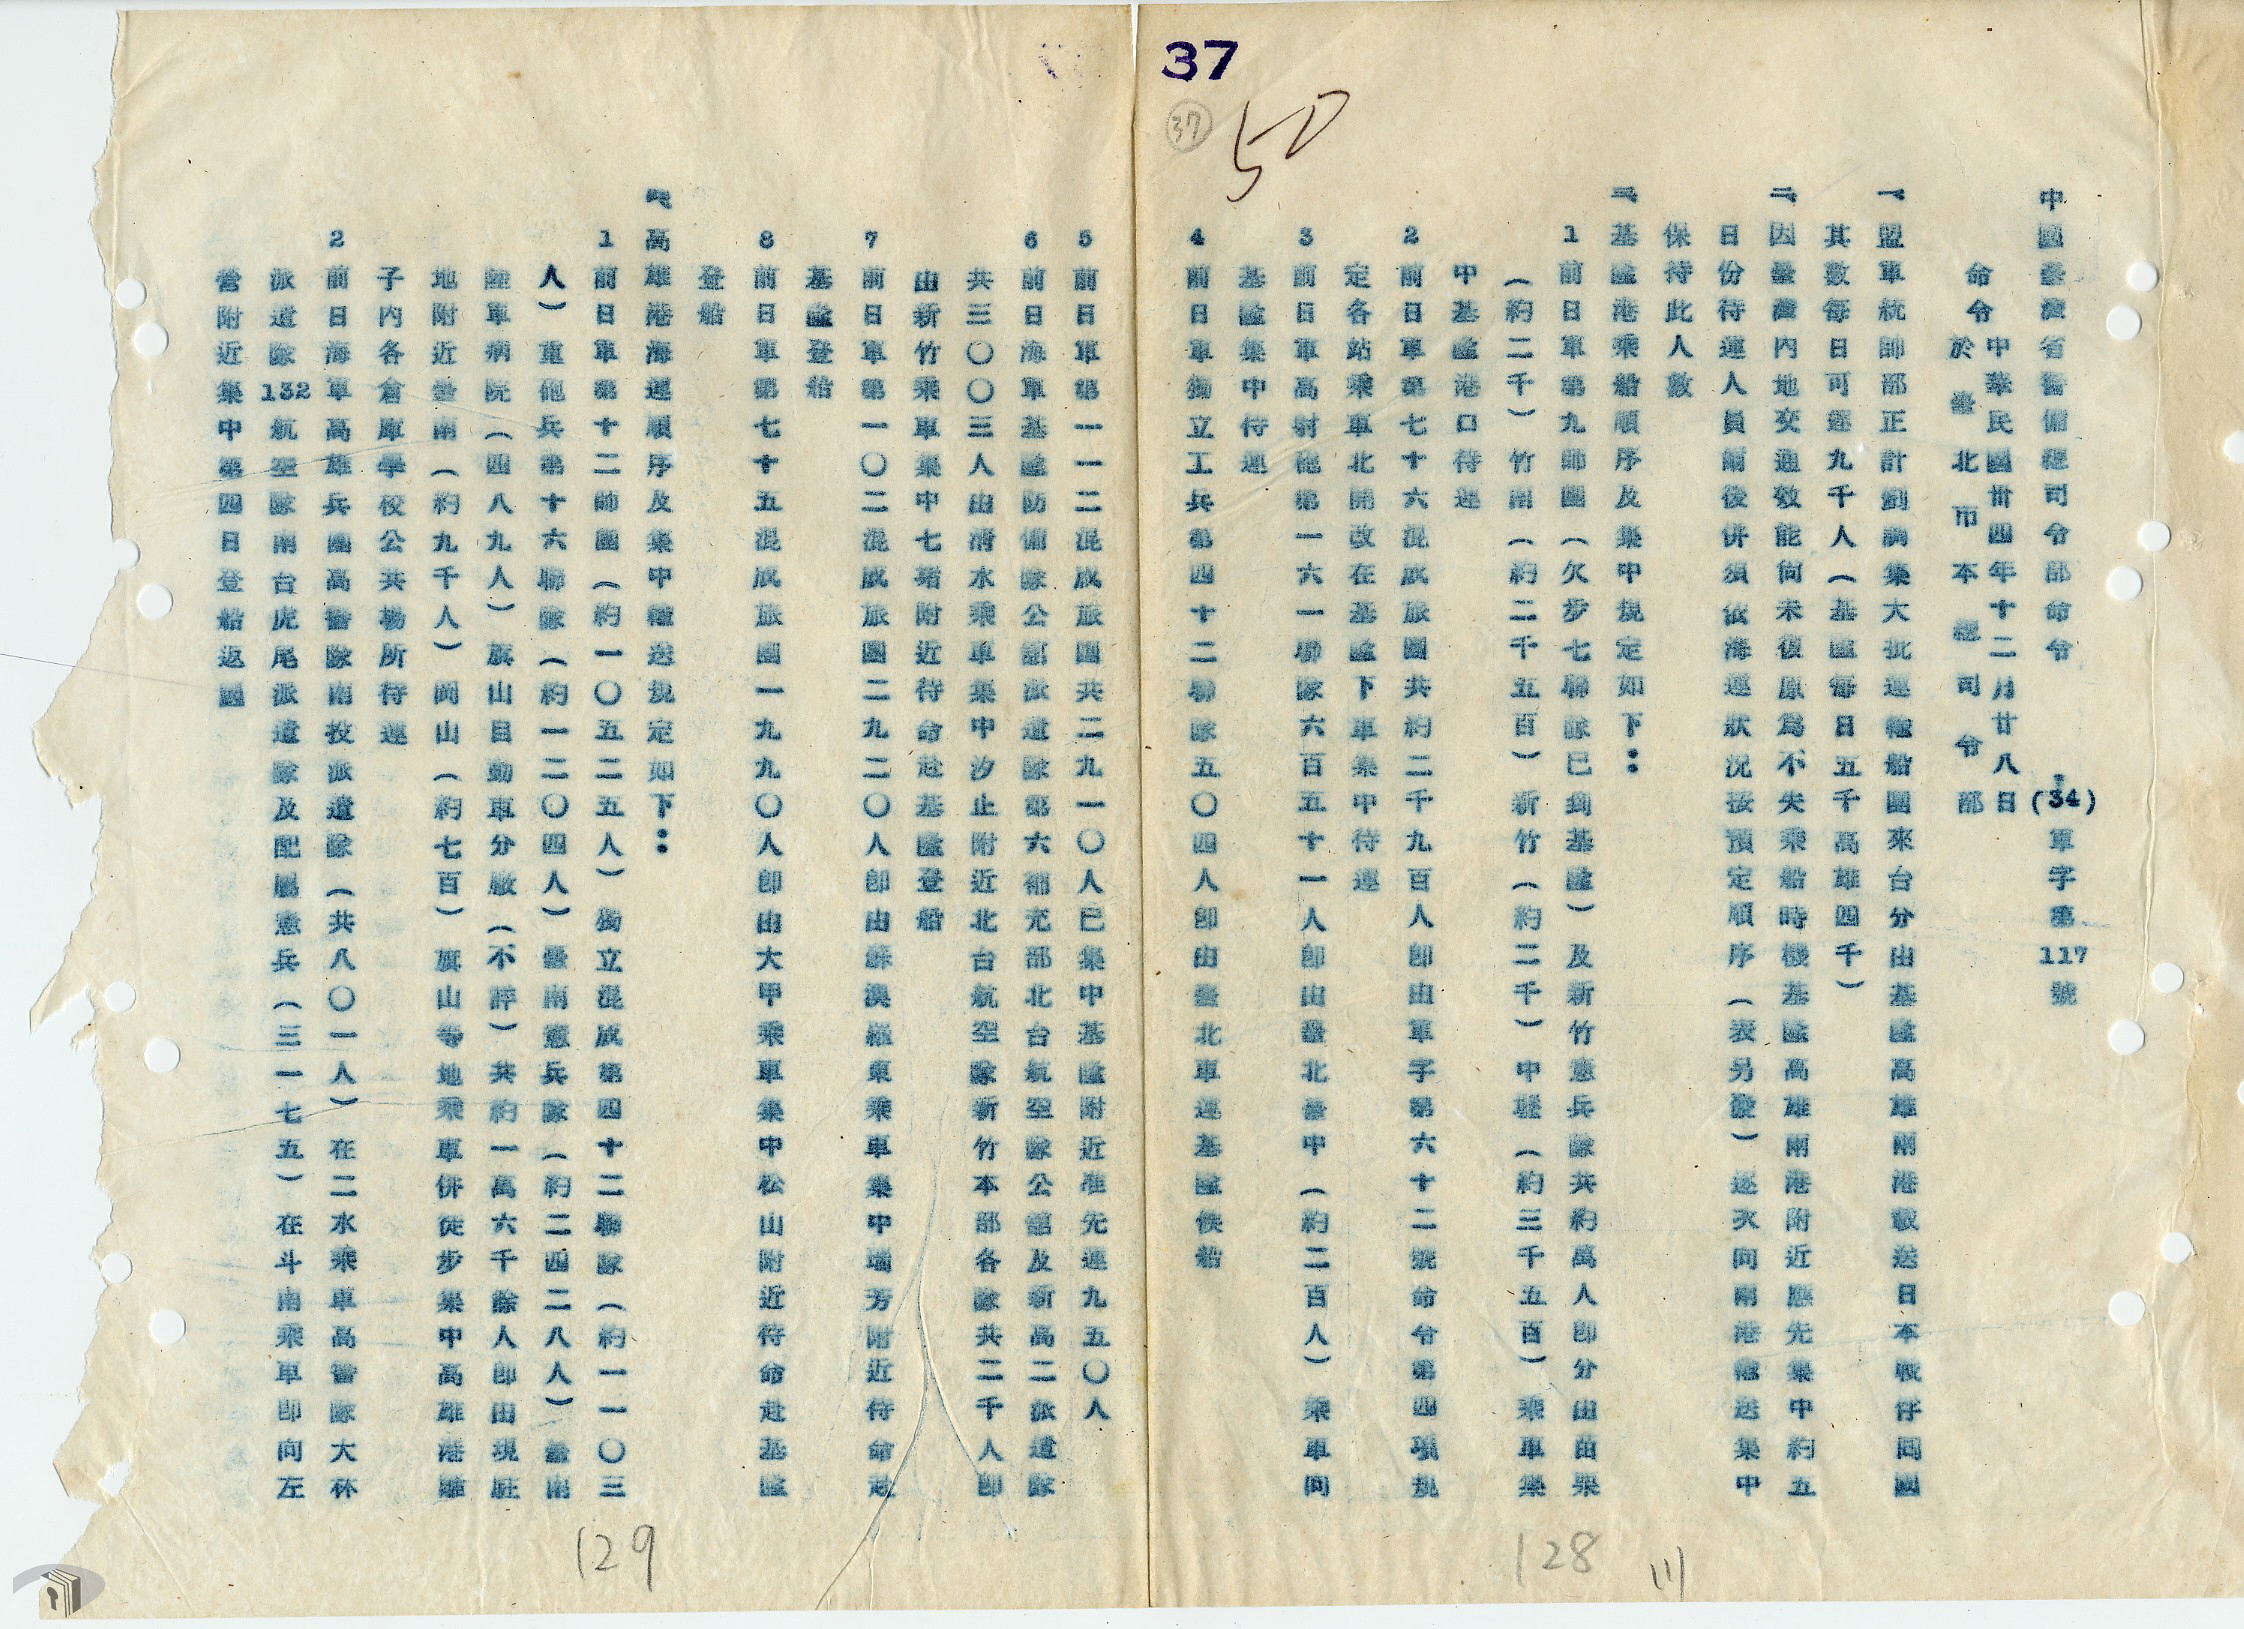 37
37
50
中國臺灣省警備總司令部命令 :(34)軍字第117號
命令 中華民國卅四年十二月廿八日
於臺北市本總司令部
一、盟軍統帥部正計劃調集大批運輸船團來台分由基隆高雄兩港載送日本戰俘囘國
其數每日可運九千人(基隆每日五千高雄四千)
二、因臺灣內地交通效能尚未復原爲不失乘船時機基隆高雄兩港附近應先集中約五
日份待運人員嗣後併須依海運狀況按預定順序(表另發)逐次向兩港輸送集中
保持此人數
三、基隆港乘船順序及集中規定如下:
1 前日軍第九師團(欠步七聯隊已到基隆)及新竹憲兵隊共約萬人卽分由苗栗
(約二千)竹南(約二千五百)新竹(約二千)中壢(約三千五百)乘車集
中基隆港口待運
2 前日軍第七十六混成旅團共約二千九百人卽由軍字第六十二號命令第四項規
定各站乘車北開改在基隆下車集中待運
3 前日軍高射砲第一六一聯隊六百五十一人卽由臺北臺中(約二百人)乘車向
基隆集中待運
4 前日軍獨立工兵第四十二聯隊五〇四人卽由臺北車運基隆候船
5 前日軍第一一二混成旅團共二九一〇人已集中基隆附近准先運九五〇人
6 前日海軍基隆防備隊公館派遣隊第六補充部北台航空隊公館及新高二派遣隊
共三〇〇三人由淸水乘車集中汐止附近北台航空隊新竹本部各隊共二千人卽
由新竹乘車集中七堵附近待命赴基隆登船
7 前日軍第一〇二混成旅團二九二〇人卽由蘇澳羅東乘車集中瑞芳附近待命赴
基隆登船
8 前日軍第七十五混成旅團一九九〇人卽由大甲乘車集中松山附近待命赴基隆
登船
四、高雄港海運順序及集中輸送規定如下:
1 前日軍第十二師團(約一〇五二五人)獨立混成第四十二聯隊(約一一〇三
人)重砲兵第十六聯隊(約一二〇四人)臺南憲兵隊(約二四二八人)臺南
陸軍病院(四八九人)旗山自動車分廠(不詳)共約一萬六千餘人卽由現駐
地附近臺南(約九千人)岡山(約七百)旗山等地乘車併徒步集中高雄港離
子內各倉庫學校公共場所待運
2 前日海軍高雄兵團高警隊南投派遣隊(共八〇一人)在二水乘車高警隊大林
派遣隊132航空隊南台虎尾派遣隊及配屬憲兵(三一七五)在斗南乘車卽向左
營附近集中第四日登船返國
129
128